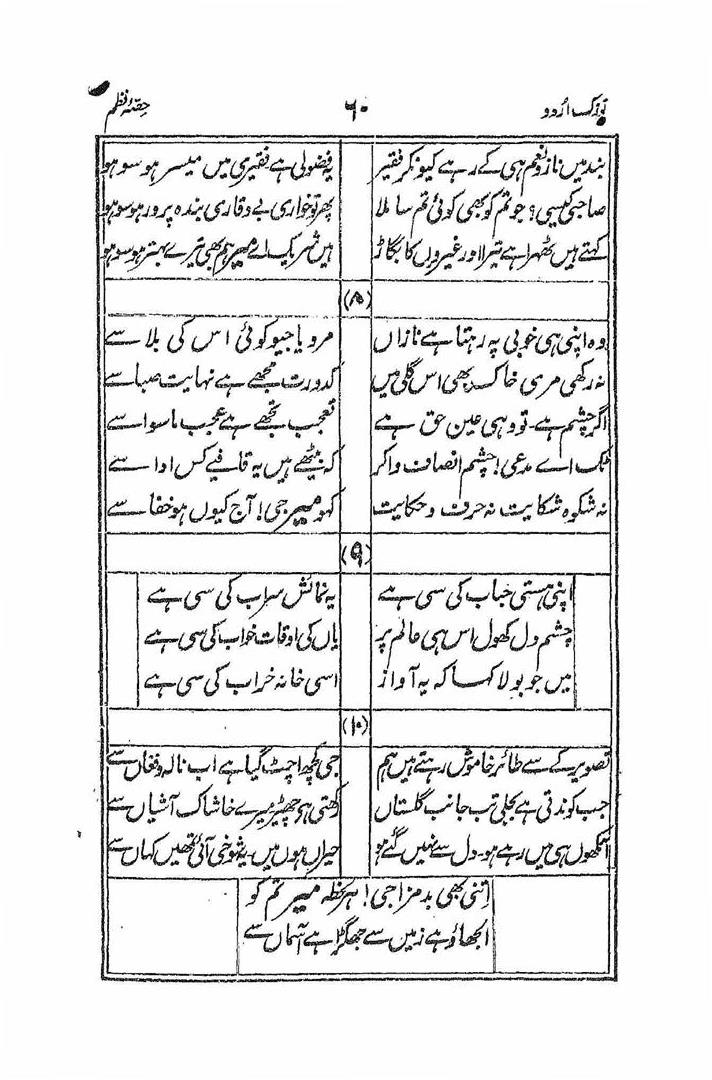 تزک اردو ۶۰ حصۂ نظم
بند میں ناز و نعم ہی کے رہے کیونکر فقیر یہ فضولی ہے فقیری میں میسر ہو سو ہو
صاحبی کیسی؟ جو تم کو بھی کوئی تم سا ملا پھر تو خواری بے وقاری بندہ پرور ہو سو ہو
کہتے ہیں ٹھہرا ہے تیرا اور غیروں کا بگاڑ ہیں شریک اے میر ہم بھی تیرے بہتر ہو سو ہو
(۸)
وہ اپنی ہی خوبی پہ رہتا ہے نازاں مرو یا جیو کوئی اس کی بلا سے
نہ رکھی مری خاک بھی اس گلی میں کدورت مجھے ہے نہایت صبا سے
اگر چشم ہے۔ تو وہی عین حق ہے تعجب تجھے ہے عجب ماسوا سے
ٹک اے مدعی! چشم انصاف وا کر کہ بیٹھے ہیں یہ قافیے کس ادا سے
نہ شکوہ شکایت نہ حرف و حکایت کہو میر جی! آج کیوں ہو خفا سے
(۹)
اپنی ہستی حباب کی سی ہے یہ نمائش سراب کی سی ہے
چشم دل کھول اس ہی عالم پر یاں کی اوقات خواب کی سی ہے
میں جو بولا کہا کہ یہ آواز اسی خانہ خراب کی سی ہے
(۱۰)
تصویر کے سے طائر خاموش رہتے ہیں ہم جی کچھ اچٹ گیا ہے اب نالہ و فغاں سے
جب کوندتی ہے بجلی تب جانب گلستاں رکھتی ہی چھیڑ میرے خاشاک آشیاں سے
آنکھوں ہی میں رہے ہو۔ دل سے نہیں گئے ہو حیراں ہوں میں۔ یہ شوخی آئی تمھیں کہاں سے
اتنی بھی بد مزاجی! ہر لحظہ میر تم کو
الجھاؤ ہے زمیں سے جھگڑا ہے آسماں سے